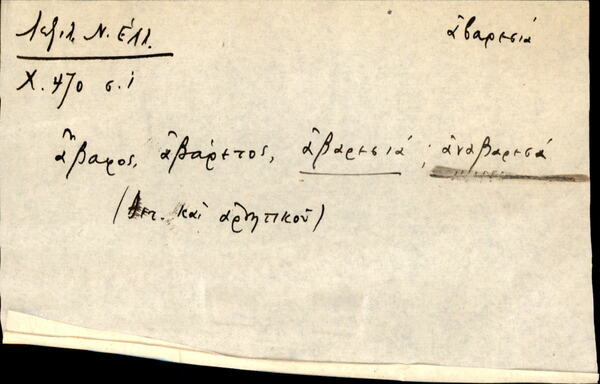 Λεξιλ. Ν. Ἑλλ.
ἀβαρεσιά
Χ. 470 σ. 1
ἄβαρος, ἀβάρετος, ἀβαρεσιά, ἀναβαρεσά
(Ἀετ. καὶ ἀρθτικοῦ)